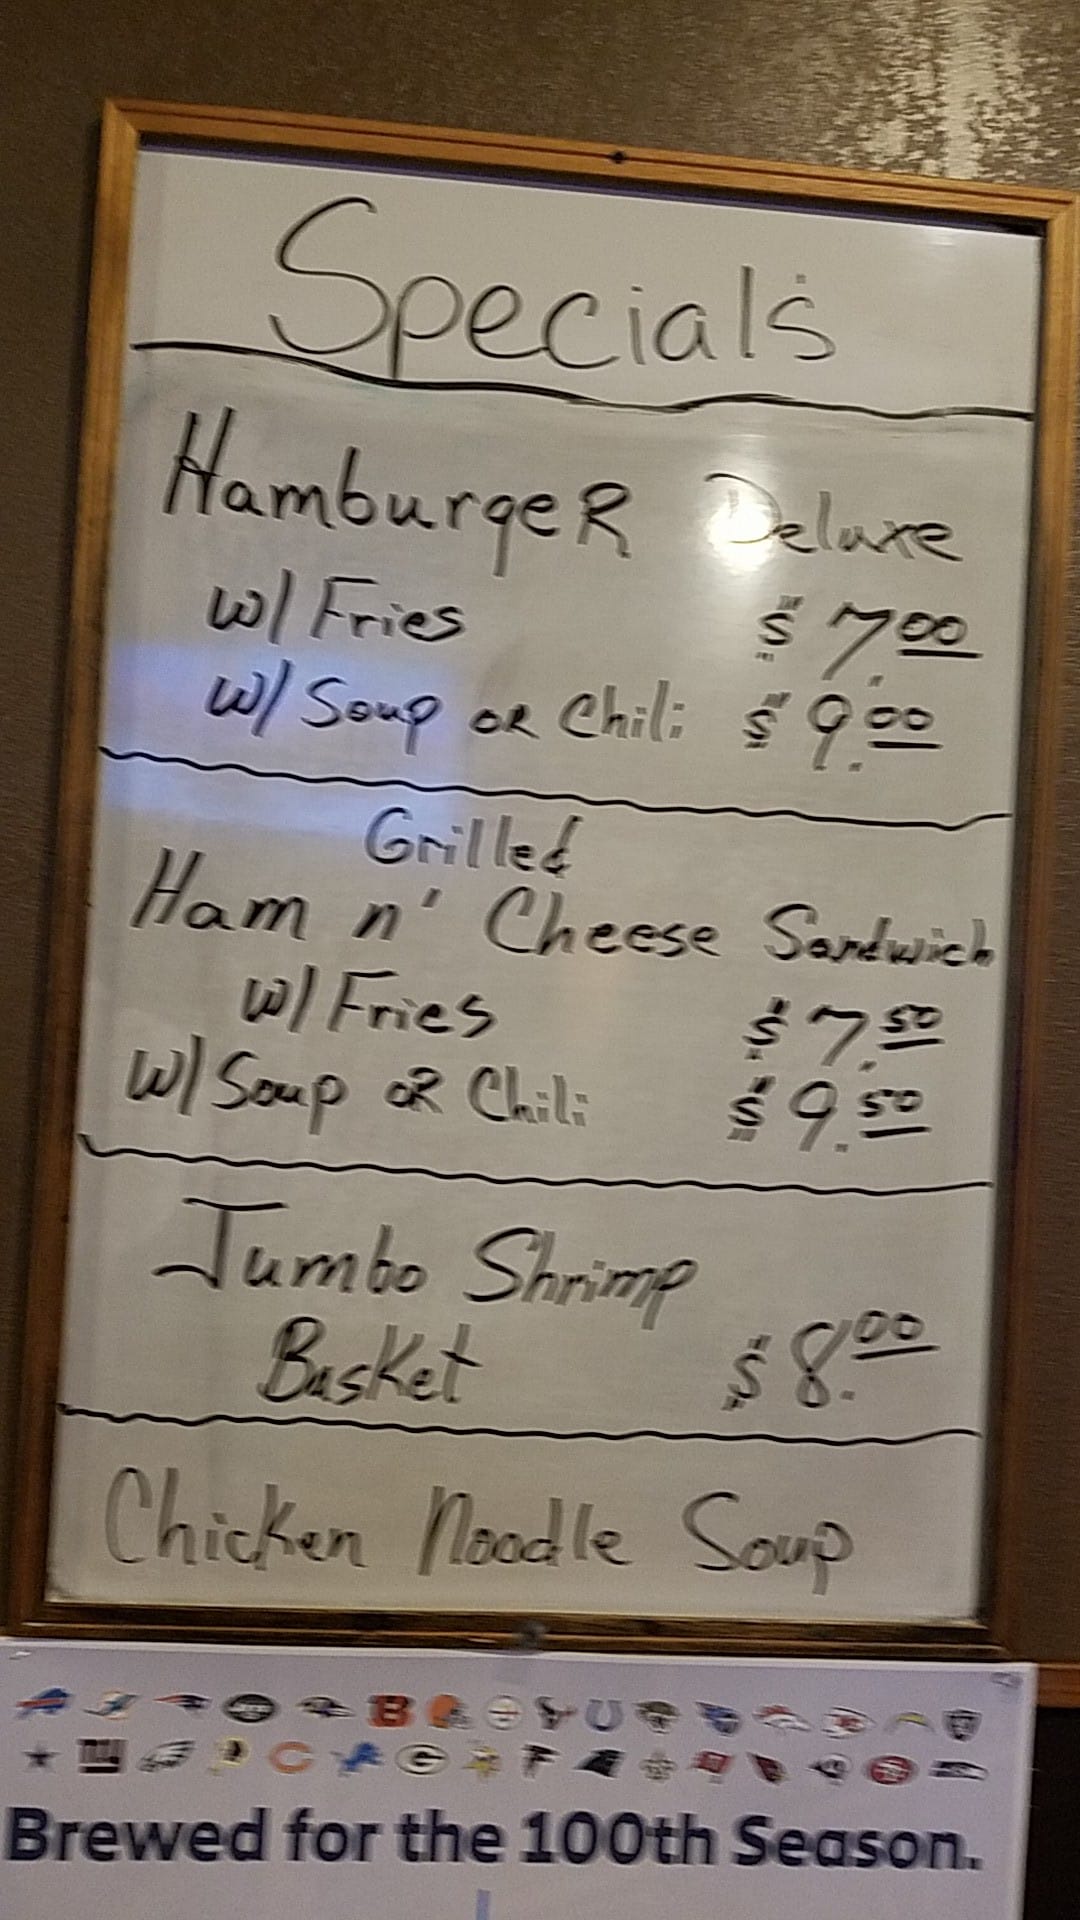 Specials
HamburgeR Deluxe
w/ Fries $ 7.00
w/ Soup oR Chili $ 9.00
Grilled
Ham n' Cheese Sandwich
w/ Fries $ 7.50
w/ Soup oR Chili $ 9.50
Jumbo Shrimp
Basket $ 8.00
Chicken Noodle Soup
Brewed for the 100th Season.